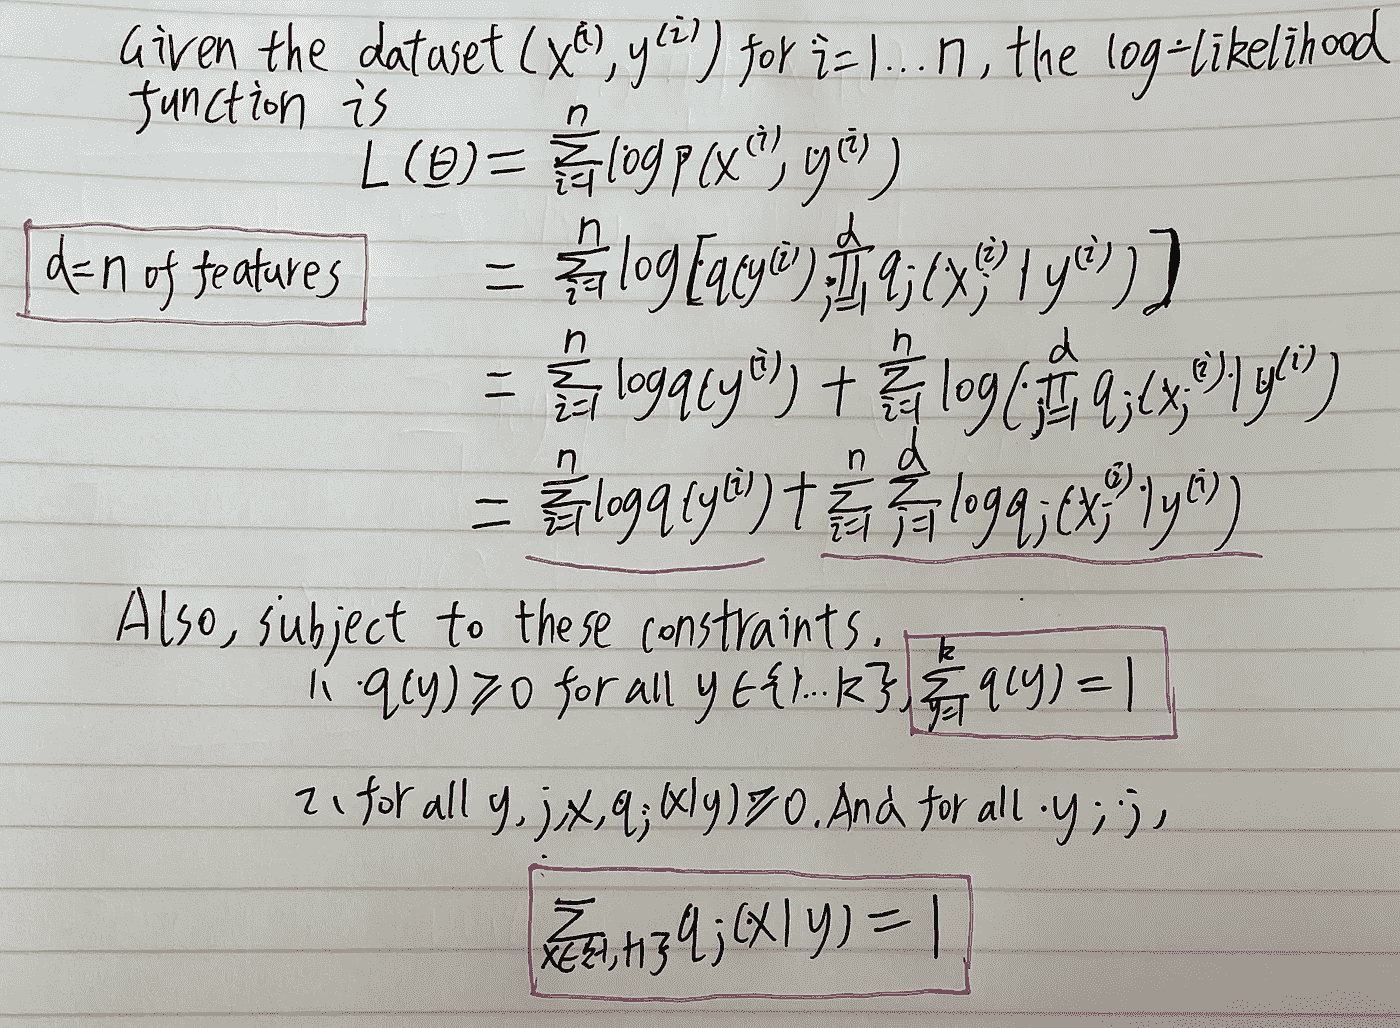 Given the dataset (x⁽ⁱ⁾, y⁽ⁱ⁾) for i=1...n, the log-likelihood
function is
L(θ) = Σ_{i=1}^{n} log p(x⁽ⁱ⁾, y⁽ⁱ⁾)
d=n of features
= Σ_{i=1}^{n} log[q(y⁽ⁱ⁾) Π_{j=1}^{d} q_j(x_j⁽ⁱ⁾ | y⁽ⁱ⁾)]
= Σ_{i=1}^{n} log q(y⁽ⁱ⁾) + Σ_{i=1}^{n} log(Π_{j=1}^{d} q_j(x_j⁽ⁱ⁾ | y⁽ⁱ⁾)
= Σ_{i=1}^{n} log q(y⁽ⁱ⁾) + Σ_{i=1}^{n} Σ_{j=1}^{d} log q_j(x_j⁽ⁱ⁾ | y⁽ⁱ⁾)
Also, subject to these constraints.
1、q(y) ≥ 0 for all y ∈ {1...k}, Σ_{y=1}^{k} q(y) = 1
2、for all y, j, x, q_j(x|y) ≥ 0. And for all y, j,
Σ_{x∈{-1,+1}} q_j(x|y) = 1